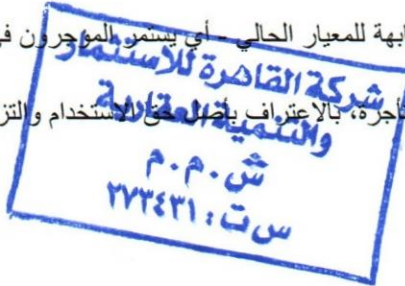 ابهة للمعيار الحالي - أي يستمر المؤجرون في
تأجرة، بالاعتراف بأصل حق الاستخدام والتز
شركة القاهرة للاستثمار
والتنمية العقارية
ش.م.م
س ت: ٢٧٣٤٣١